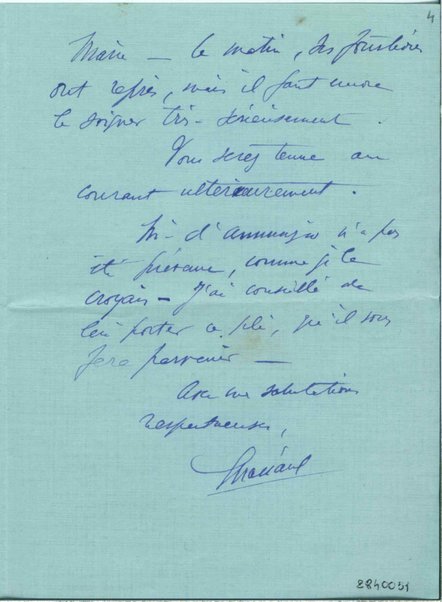 4
Marie — ce matin, des
ont repris, mais il faut encore
le soigner très - sérieusement.
Vous serez tenue au
courant ultérieurement.
Mr d'Annunzio n'a pas
été prévenu, comme je le
croyais — J'ai conseillé de
lui porter ce pli, qu'il vous
fera parvenir —
Avec mes salutations
respectueuses,
8840051